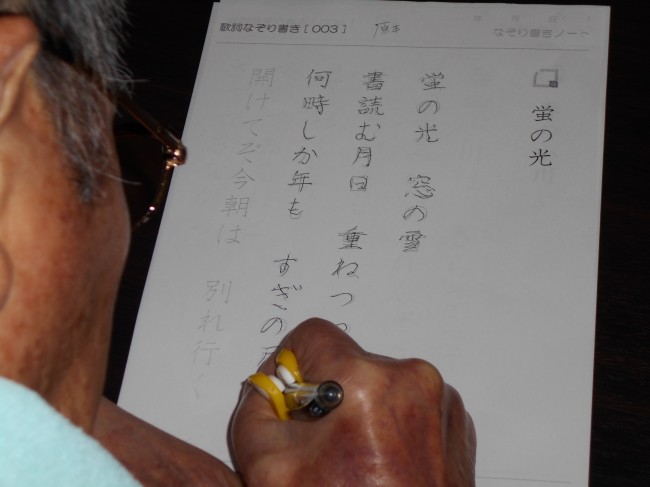 歌詞なぞり書き［003］
なぞり書きノート
蛍の光
蛍の光　窓の雪
書読む月日　重ねつつ
何時しか年も　すぎの戸
開けてぞ今朝は　別れ行く